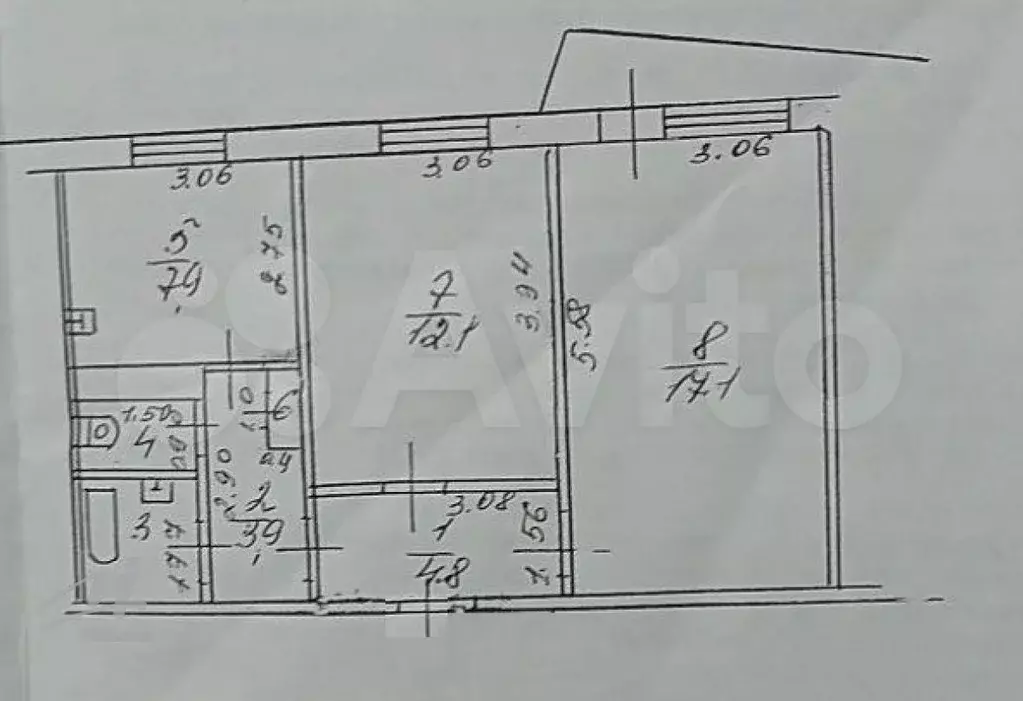 3.06
3.06
3.06
2.75
7
12.1
3.94
5.58
8
17.1
Avito
1.50
4
1.0
6
0.4
2.90
2
3,9
3
1.77
3.08
1
4.8
1.56